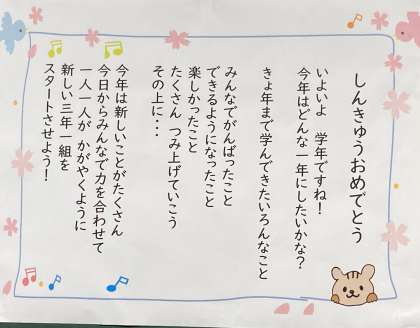 しんきゅうおめでとう
いよいよ 学年ですね!
今年はどんな一年にしたいかな?
きょ年まで学んできたいろんなこと
みんなでがんばったこと
できるようになったこと
楽しかったこと
たくさん つみ上げていこう
その上に・・・
今年は新しいことがたくさん
今日からみんなで力を合わせて
一人一人が かがやくように
新しい三年一組を
スタートさせよう!